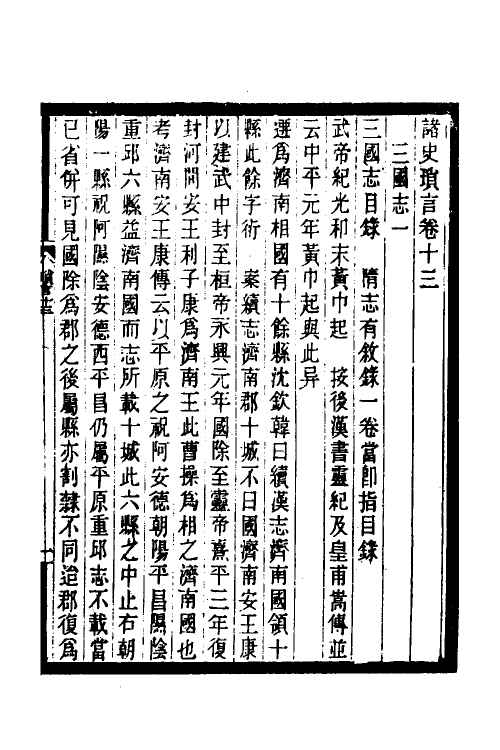 諸史瑣言卷十三
三國志一
三國志目錄　隋志有敘錄一卷當卽指目錄
武帝紀光和末黃巾起　按後漢書靈紀及皇甫嵩傳並
云中平元年黃巾起與此异
遷爲濟南相國有十餘縣沈欽韓曰續漢志濟南國領十
縣此餘字術　案續志濟南郡十城不曰國濟南安王康
以建武中封至桓帝永興元年國除至靈帝熹平三年復
封河間安王利子康爲濟南王此曹操爲相之濟南國也
考濟南安王康傳云以平原之祝阿安德朝陽平昌隰陰
重邱六縣益濟南國而志所載十城此六縣之中止右朝
陽一縣祝阿隰陰安德西平昌仍屬平原重邱志不載當
已省併可見國除爲郡之後屬縣亦割隸不同迨郡復爲